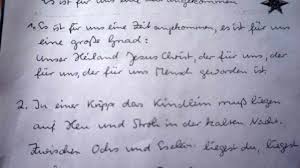 es ist für uns eine Zeit angekommen
1. Es ist für uns eine Zeit angekommen, es ist für uns
eine große Gnad:
Unser Heiland Jesus Christ, der für uns, der
für uns, der für uns Mensch geworden ist.
2. In einer Kripp das Kindlein muß liegen
auf Heu und Stroh in der kalten Nacht.
Zwischen Ochs und Eselein liegest du, liegest